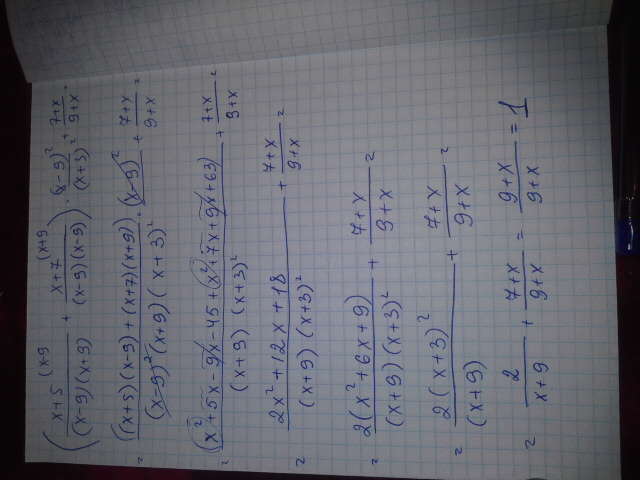 ( x+5 (x-9 / (x-9)(x+9) + x+7 (x+9 / (x-9)(x-9) ) · (x-9)² / (x+3)² + 7+x / 9+x =
= ((x+5)(x-9) + (x+7)(x+9)) · (x-9)² / (x-9)²(x+9)(x+3)² + 7+x / 9+x =
= (x²+5x-9x-45+x²+7x+9x+63) / (x+9) (x+3)² + 7+x / 9+x =
= 2x²+12x+18 / (x+9) (x+3)² + 7+x / 9+x =
= 2(x²+6x+9) / (x+9) (x+3)² + 7+x / 9+x =
= 2(x+3)² / (x+9) + 7+x / 9+x =
= 2 / x+9 + 7+x / 9+x = 9+x / 9+x = 1